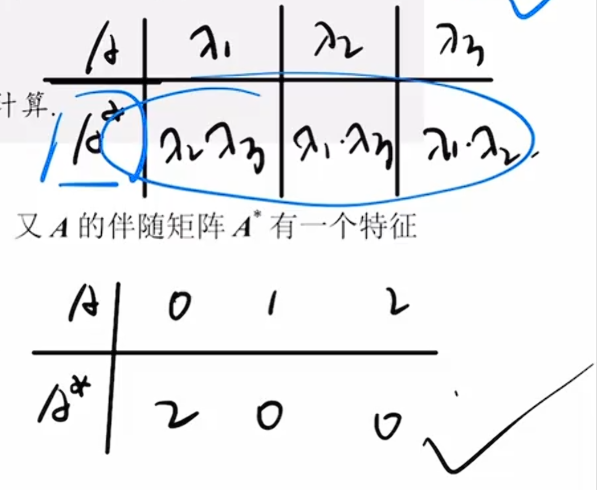 A λ1 λ2 λ3
计算.
A* λ2λ3 λ1·λ3 λ1·λ2.
又 A 的伴随矩阵 A* 有一个特征
A 0 1 2
A* 2 0 0